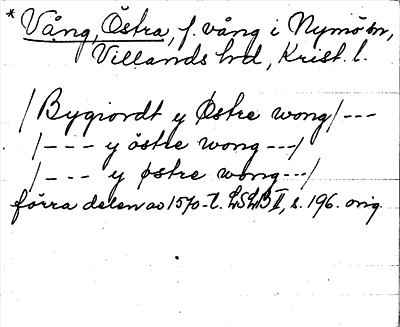 * Vång, Östra, f. vång i Nymö sn,
Villands hd, Krist. l.
/Bygiordt y Østre wong/---
/--- y östre wong ---/
/--- y østre wong ---/
förra delen av 1570-t. LSLB II, s. 196. orig.